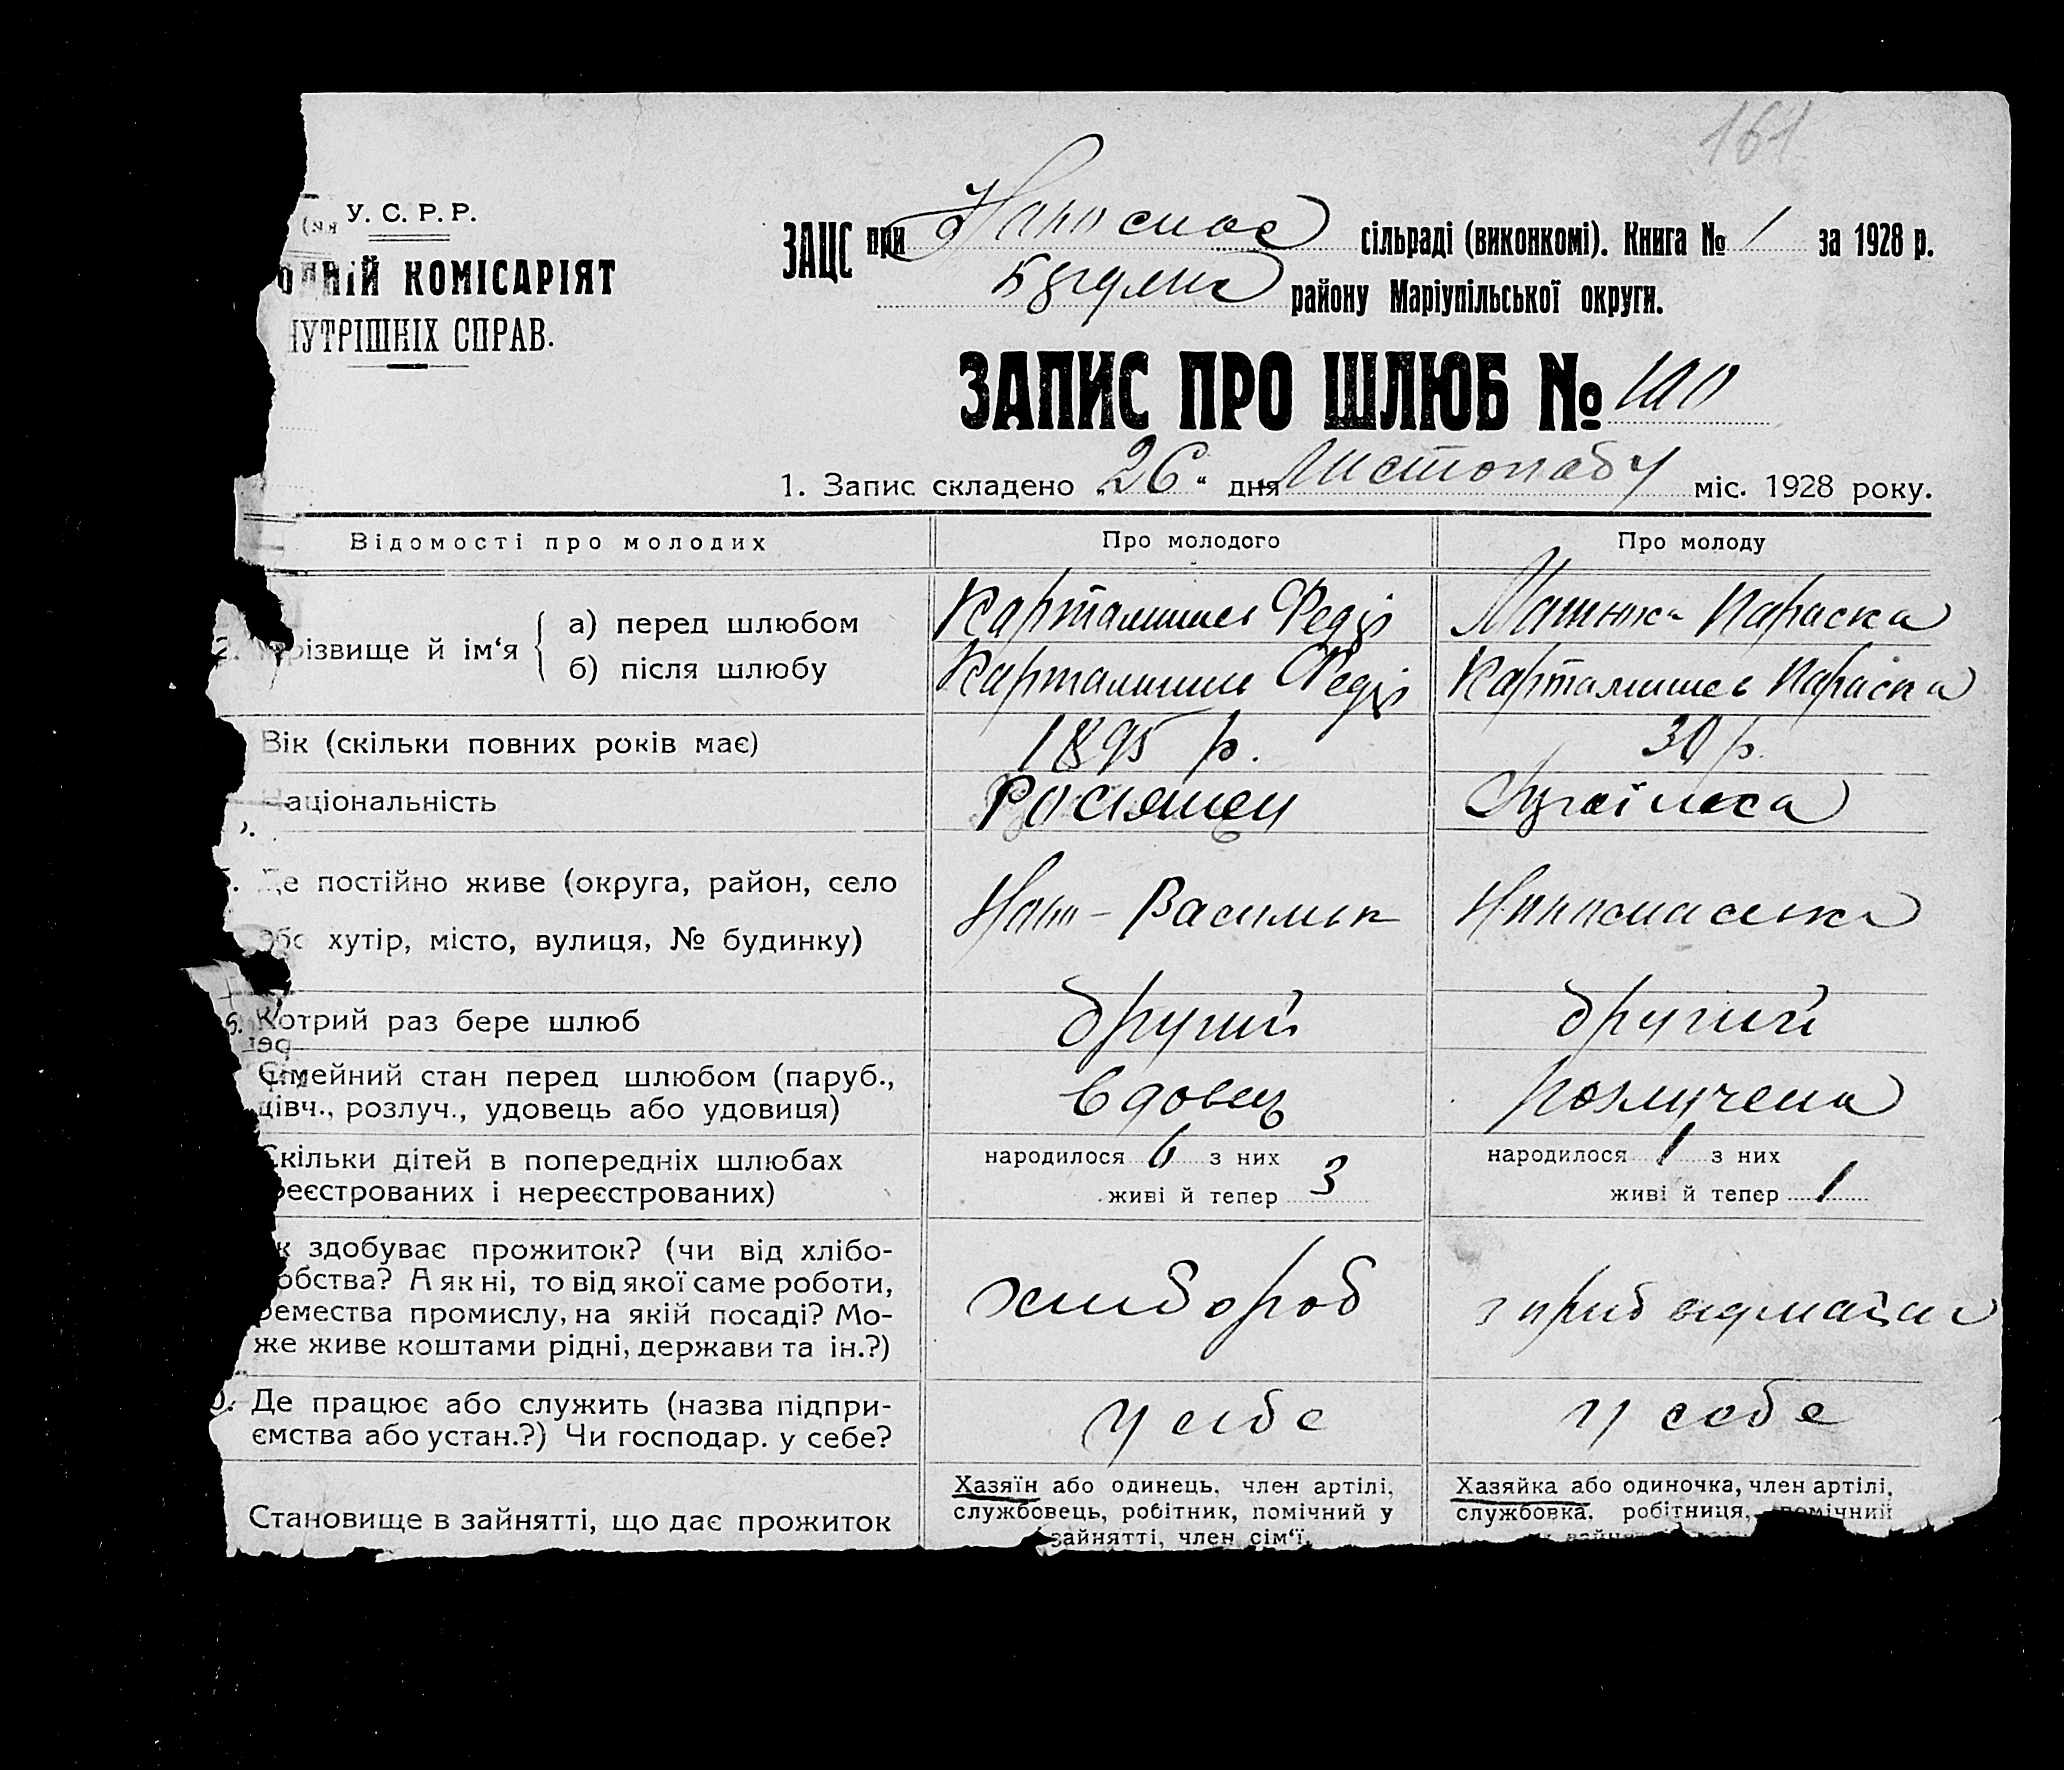 161
У. С. Р. Р.
КОМІСАРІЯТ
СПРАВ.
ЗАЦС при сільраді (виконкомі). Книга № 1 за 1928 р.
району Маріупільської округи.
ЗАПИС ПРО ШЛЮБ № 100
1. Запис складено „26“ дня Листопаду міс. 1928 року.
Відомості про молодих
Про молодого
Про молоду
Прізвище й ім‘я
а) перед шлюбом
Федір
Параска
б) після шлюбу
Федір
Параска
Вік (скільки повних років має)
1895 р.
30 р.
Національність
Росіянец
Де постійно живе (округа, район, село
або хутір, місто, вулиця, № будинку)
6. Котрий раз бере шлюб
другий
другий
Сімейний стан перед шлюбом (паруб.,
дівч., розлуч., удовець або удовиця)
вдовец
розлучена
Скільки дітей в попередніх шлюбах
реєстрованих і нереєстрованих)
народилося 6 з них
живі й тепер 3
народилося 1 з них
живі й тепер 1
здобуває прожиток? (чи від хлібо-
робства? А як ні, то від якої саме роботи,
ремества промислу, на якій посаді? Мо-
же живе коштами рідні, держави та ін.?)
хлібороб
Де працює або служить (назва підпри-
ємства або устан.?) Чи господар. у себе?
у себе
у себе
Становище в зайнятті, що дає прожиток
Хазяїн або одинець, член артілі,
службовець, робітник, помічний у
зайнятті, член сім‘ї.
Хазяйка або одиночка, член артілі,
службовка, робітниця, помічний